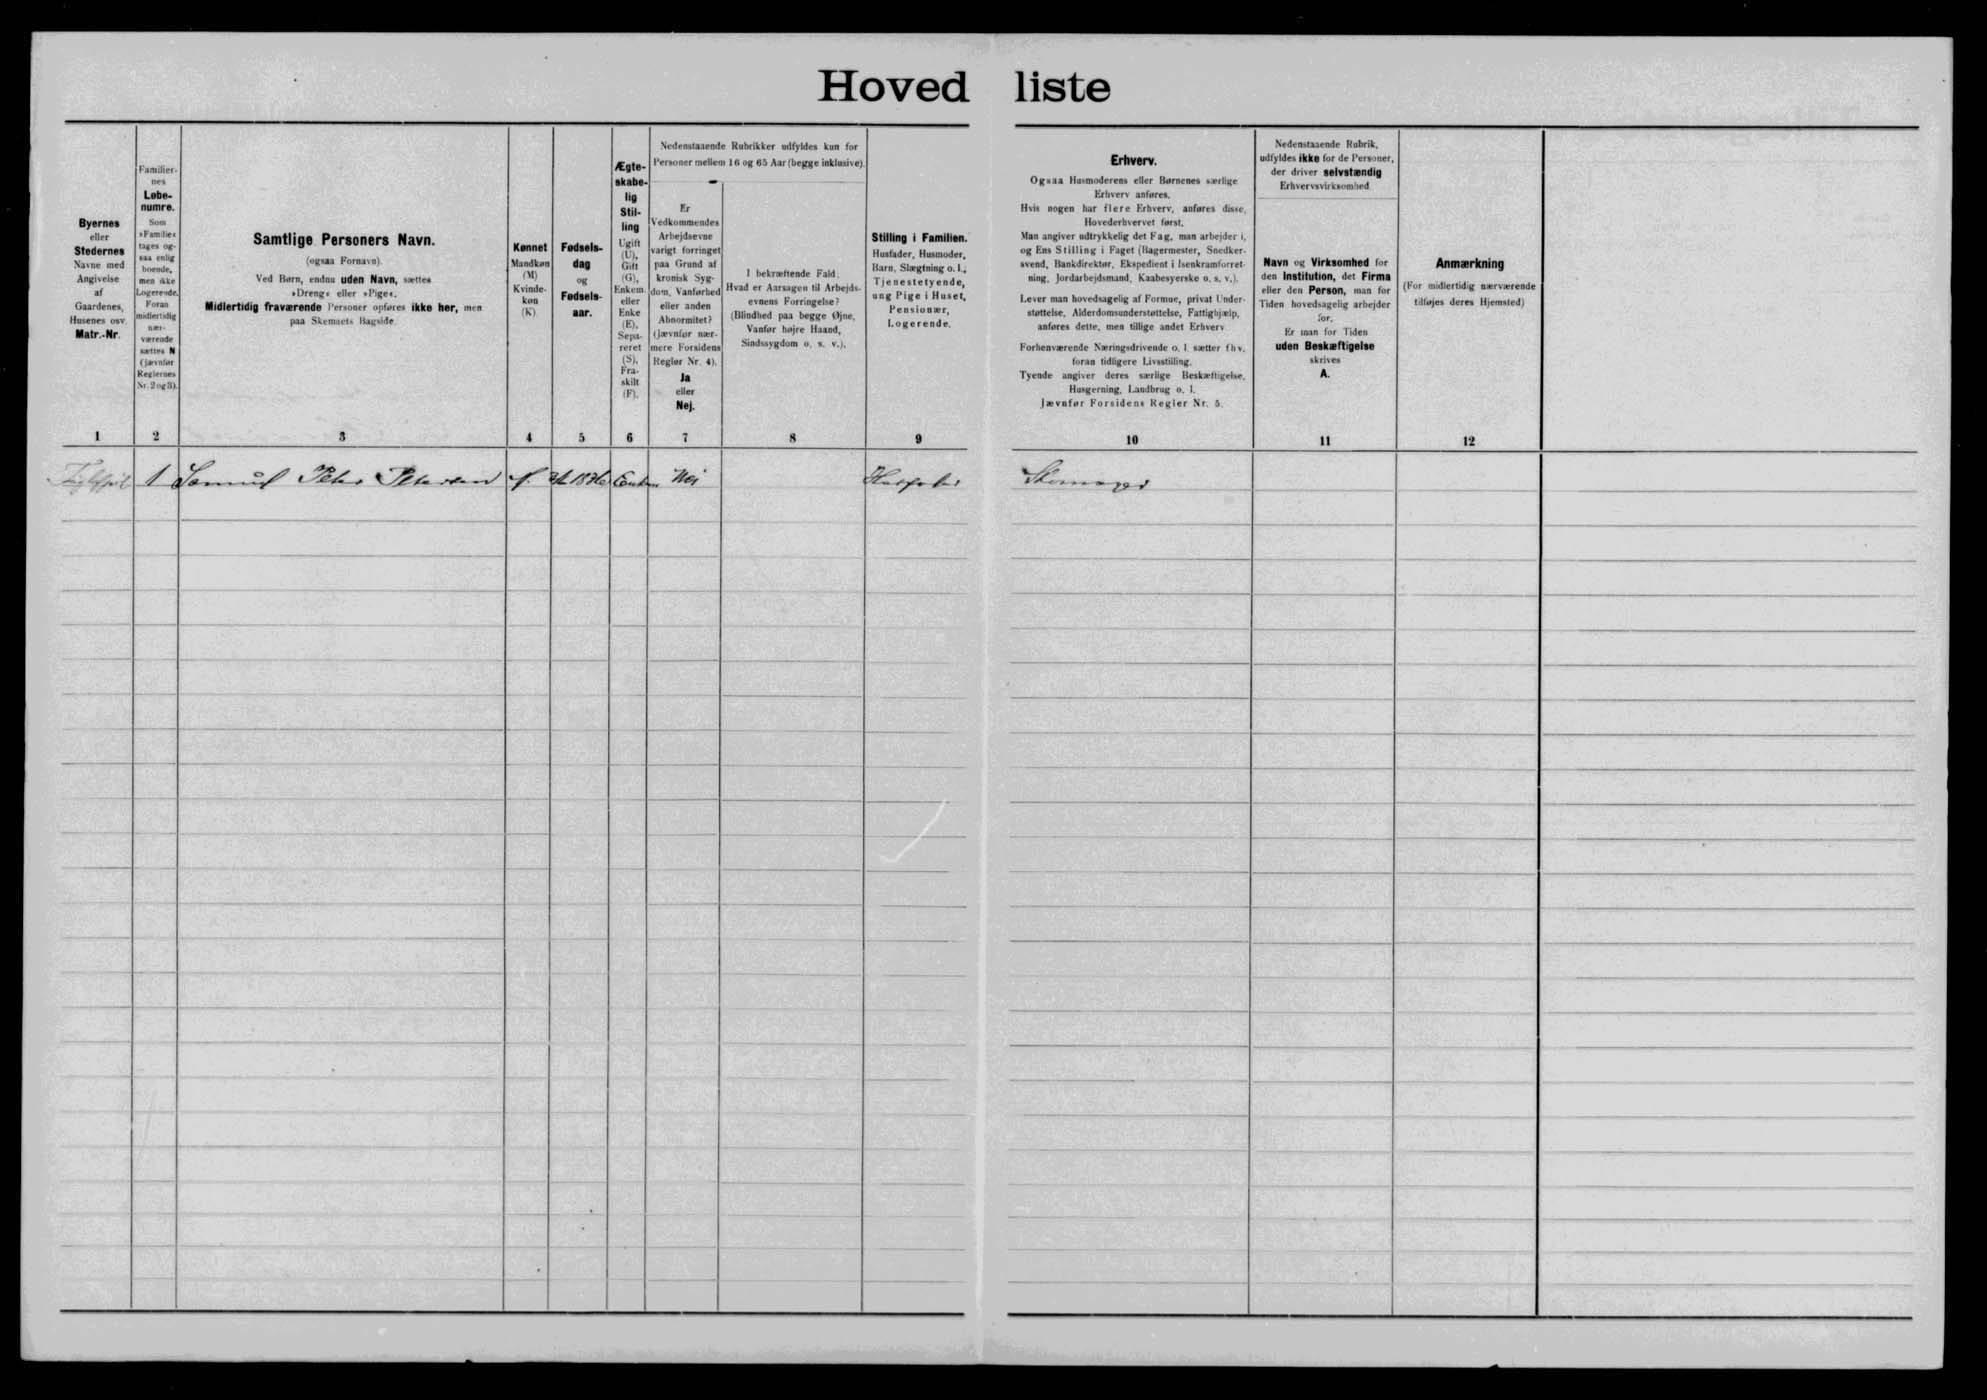 Hoved liste
Byernes
eller
Stedernes
Navne med
Angivelse
af
Gaardenes,
Husenes osv.
Matr.-Nr.
1
Familier-
nes
Løbe-
numre.
Som
»Familie«
tages og-
saa enlig
boende,
men ikke
Logerende.
Foran
midlertidig
nær-
værende
sættes N
(jævnfør
Reglernes
Nr. 2 og 3).
2
Samtlige Personers Navn.
(ogsaa Fornavn).
Ved Børn, endnu uden Navn, sættes
»Dreng« eller »Pige«.
Midlertidig fraværende Personer opføres ikke her, men
paa Skemaets Bagside.
3
Kønnet
Mandkøn
(M)
Kvinde-
køn
(K)
4
Fødsels-
dag
og
Fødsels-
aar.
5
Ægte-
skabe-
lig
Stil-
ling
Ugift
(U),
Gift
(G),
Enkem.
eller
Enke
(E),
Sepa-
reret
(S),
Fra-
skilt
(F).
6
Nedenstaaende Rubrikker udfyldes kun for
Personer mellem 16 og 65 Aar (begge inklusive).
Er
Vedkommendes
Arbejdsevne
varigt forringet
paa Grund af
kronisk Syg-
dom, Vanførhed
eller anden
Abnormitet?
(Jævnfør nær-
mere Forsidens
Regler Nr. 4).
Ja
eller
Nej.
7
I bekræftende Fald:
Hvad er Aarsagen til Arbejds-
evnens Forringelse?
(Blindhed paa begge Øjne,
Vanfør højre Haand,
Sindssygdom o. s. v.).
8
Stilling i Familien.
Husfader, Husmoder,
Barn, Slægtning o. l.,
Tjenestetyende,
ung Pige i Huset,
Pensionær,
Logerende.
9
Erhverv.
Ogsaa Husmoderens eller Børnenes særlige
Erhverv anføres.
Hvis nogen har flere Erhverv, anføres disse,
Hovederhvervet først.
Man angiver udtrykkelig det Fag, man arbejder i,
og Ens Stilling i Faget (Bagermester, Snedker-
svend, Bankdirektør, Ekspedient i Isenkramforret-
ning, Jordarbejdsmand, Kaabesyerske o. s. v.).
Lever man hovedsagelig af Formue, privat Under-
støttelse, Alderdomsunderstøttelse, Fattighjælp,
anføres dette, men tillige andet Erhverv
Forhenværende Næringsdrivende o. l. sætter fhv.
foran tidligere Livsstilling.
Tyende angiver deres særlige Beskæftigelse,
Husgerning, Landbrug o. l.
Jævnfør Forsidens Regler Nr. 5.
10
Nedenstaaende Rubrik,
udfyldes ikke for de Personer,
der driver selvstændig
Erhvervsvirksomhed.
Navn og Virksomhed for
den Institution, det Firma
eller den Person, man for
Tiden hovedsagelig arbejder
for.
Er man for Tiden
uden Beskæftigelse
skrives
A.
11
Anmærkning
(For midlertidig nærværende
tilføjes deres Hjemsted)
12
1 Samuel Peter Petersen 1876 Nei Husfader Skomager